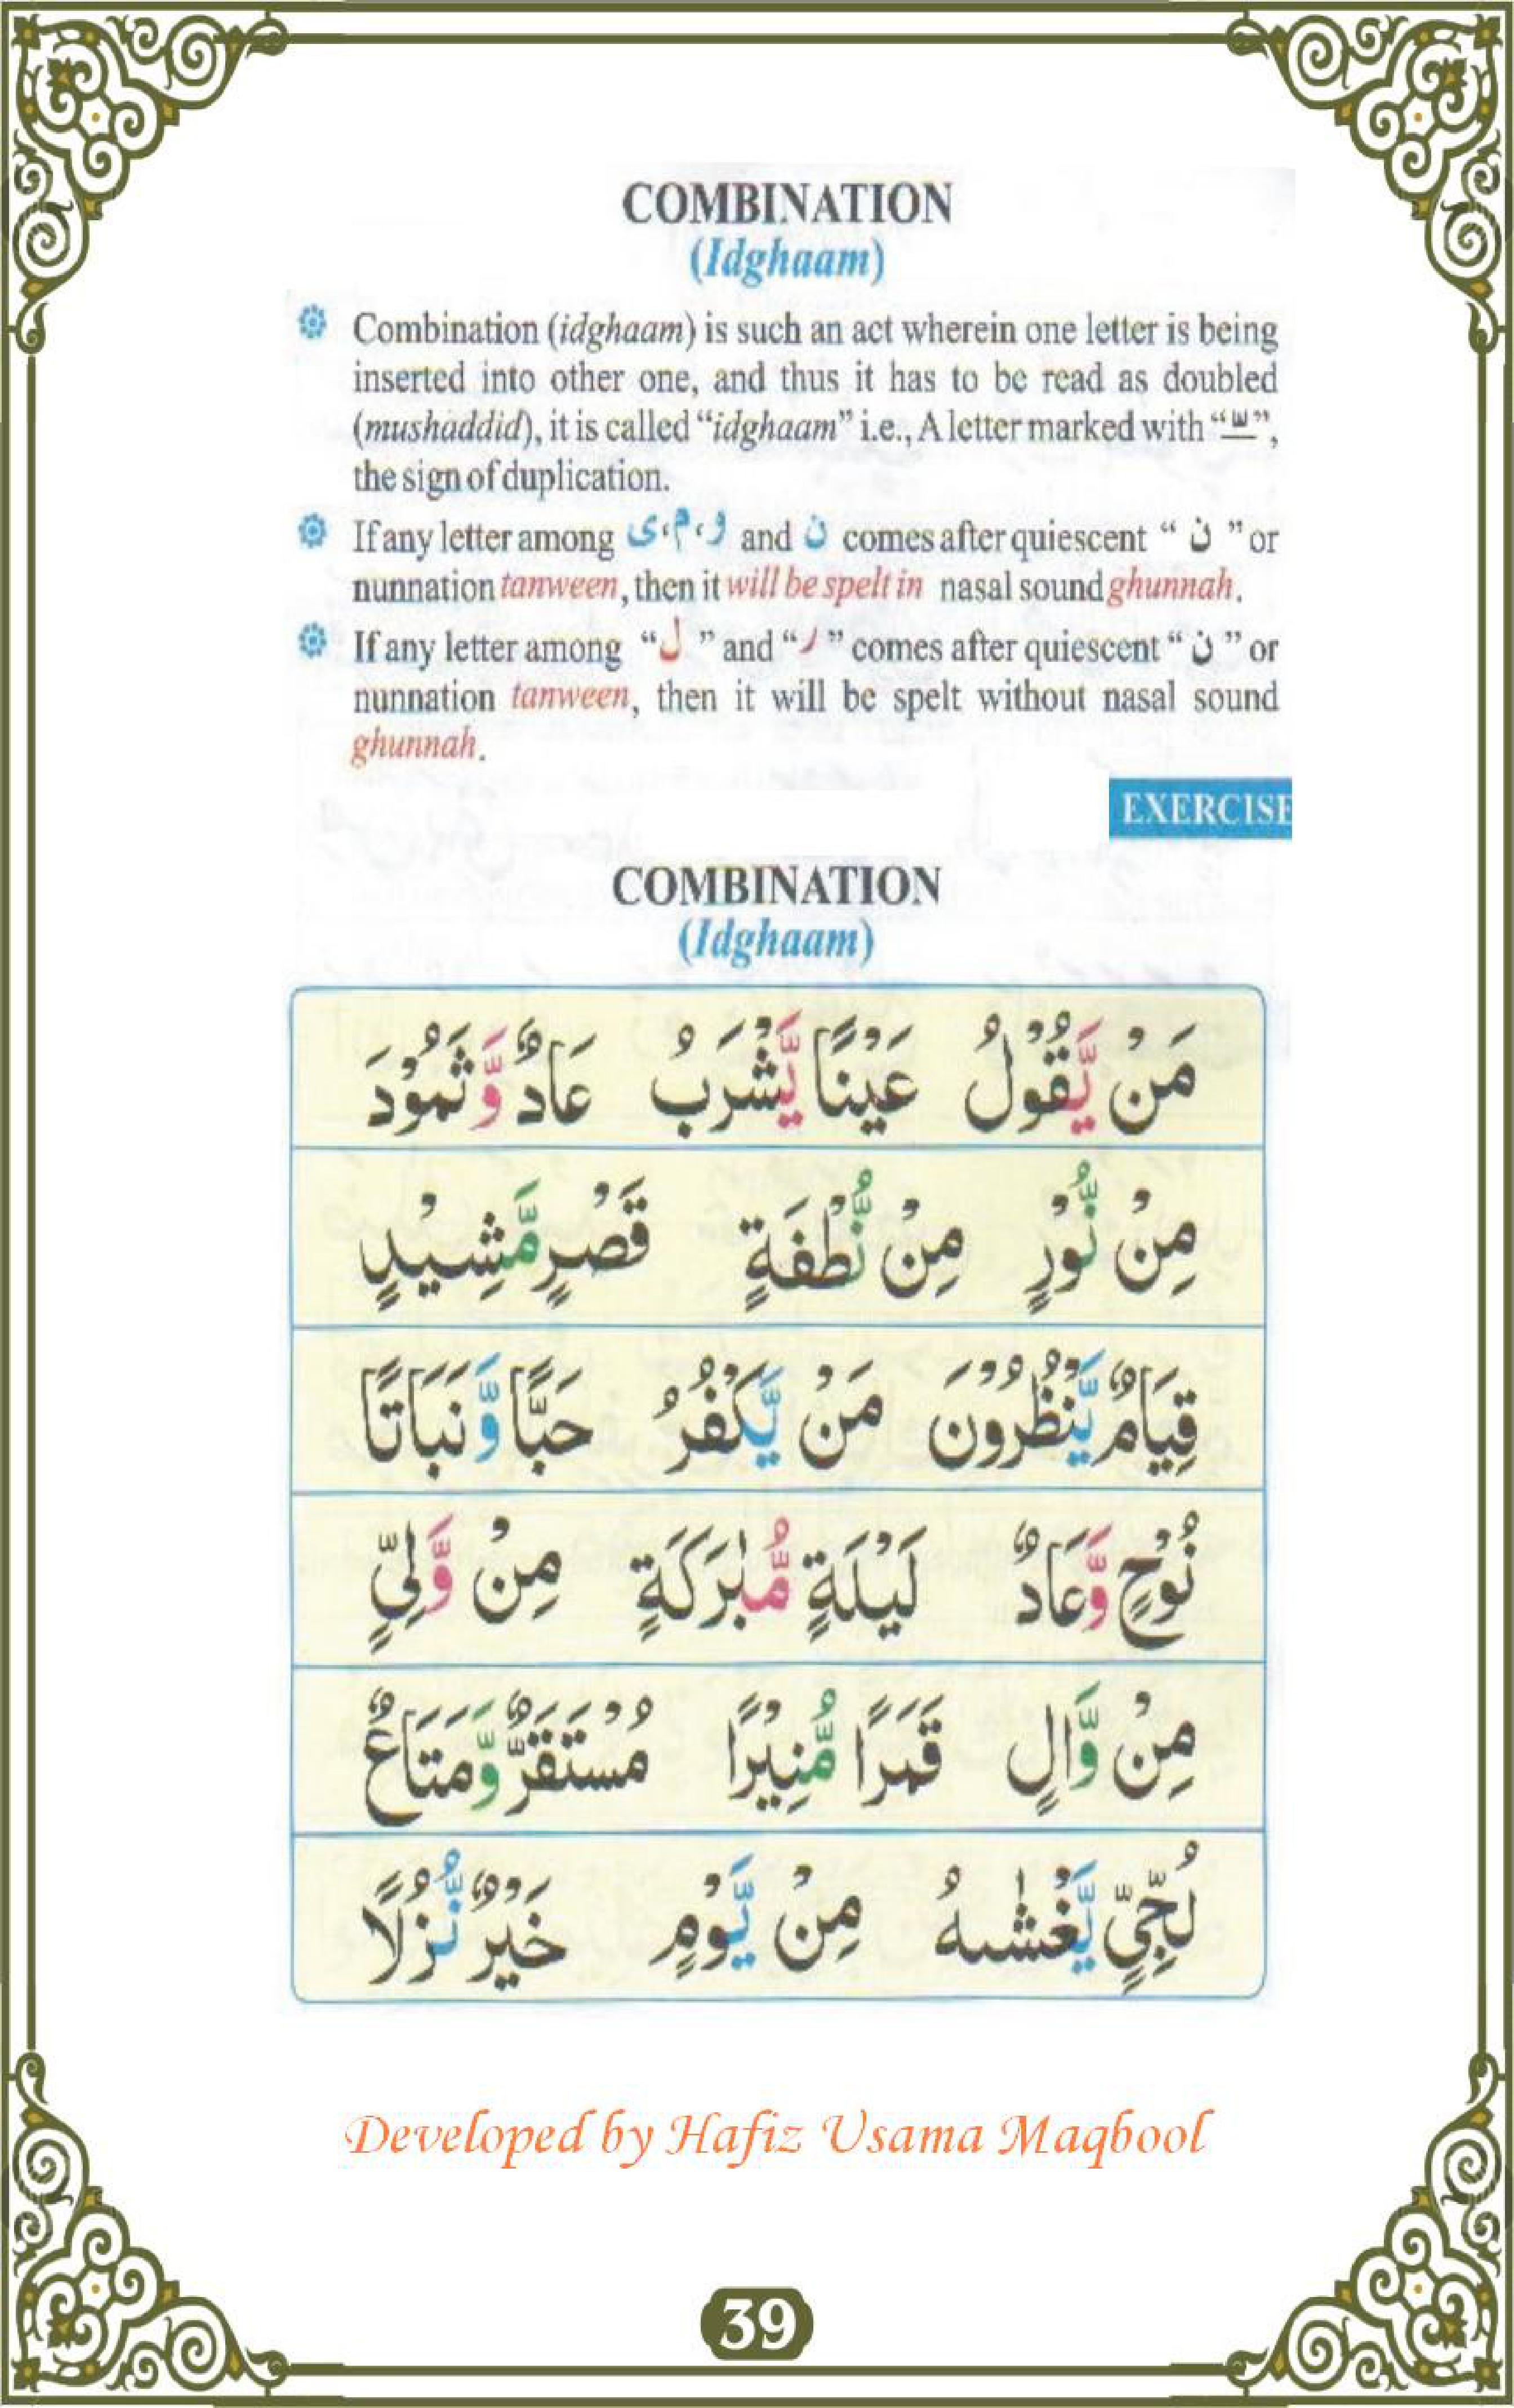 COMBINATION
(Idghaam)
Combination (idghaam) is such an act wherein one letter is being
inserted into other one, and thus it has to be read as doubled
(mushaddid), it is called “idghaam” i.e., A letter marked with “ـّـ”,
the sign of duplication.
If any letter among و، م، ی and ن comes after quiescent “ نْ ” or
nunnation tanween, then it will be spelt in nasal sound ghunnah.
If any letter among “ ل ” and “ ر ” comes after quiescent “ نْ ” or
nunnation tanween, then it will be spelt without nasal sound
ghunnah.
EXERCISE
COMBINATION
(Idghaam)
مَنْ يَّقُوْلُ عَيْنًا يَّشْرَبُ عَادٌ وَّثَمُوْدَ
مِنْ نُّوْرٍ مِنْ نُّطْفَةٍ قَصْرٍ مَّشِيْدٍ
قِيَامٌ يَّنْظُرُوْنَ مَنْ يَّكْفُرُ حَبًّا وَّنَبَاتًا
نُوْحٍ وَّعَادٌ لَيْلَةٍ مُّبٰرَكَةٍ مِنْ وَّلِيٍّ
مِنْ وَّالٍ قَمَرًا مُّنِيْرًا مُسْتَقَرٌّ وَّمَتَاعٌ
لُجِّيٍّ يَّغْشٰىهُ مِنْ يَّوْمٍ خَيْرٌ نُّزُلًا
Developed by Hafiz Usama Maqbool
39